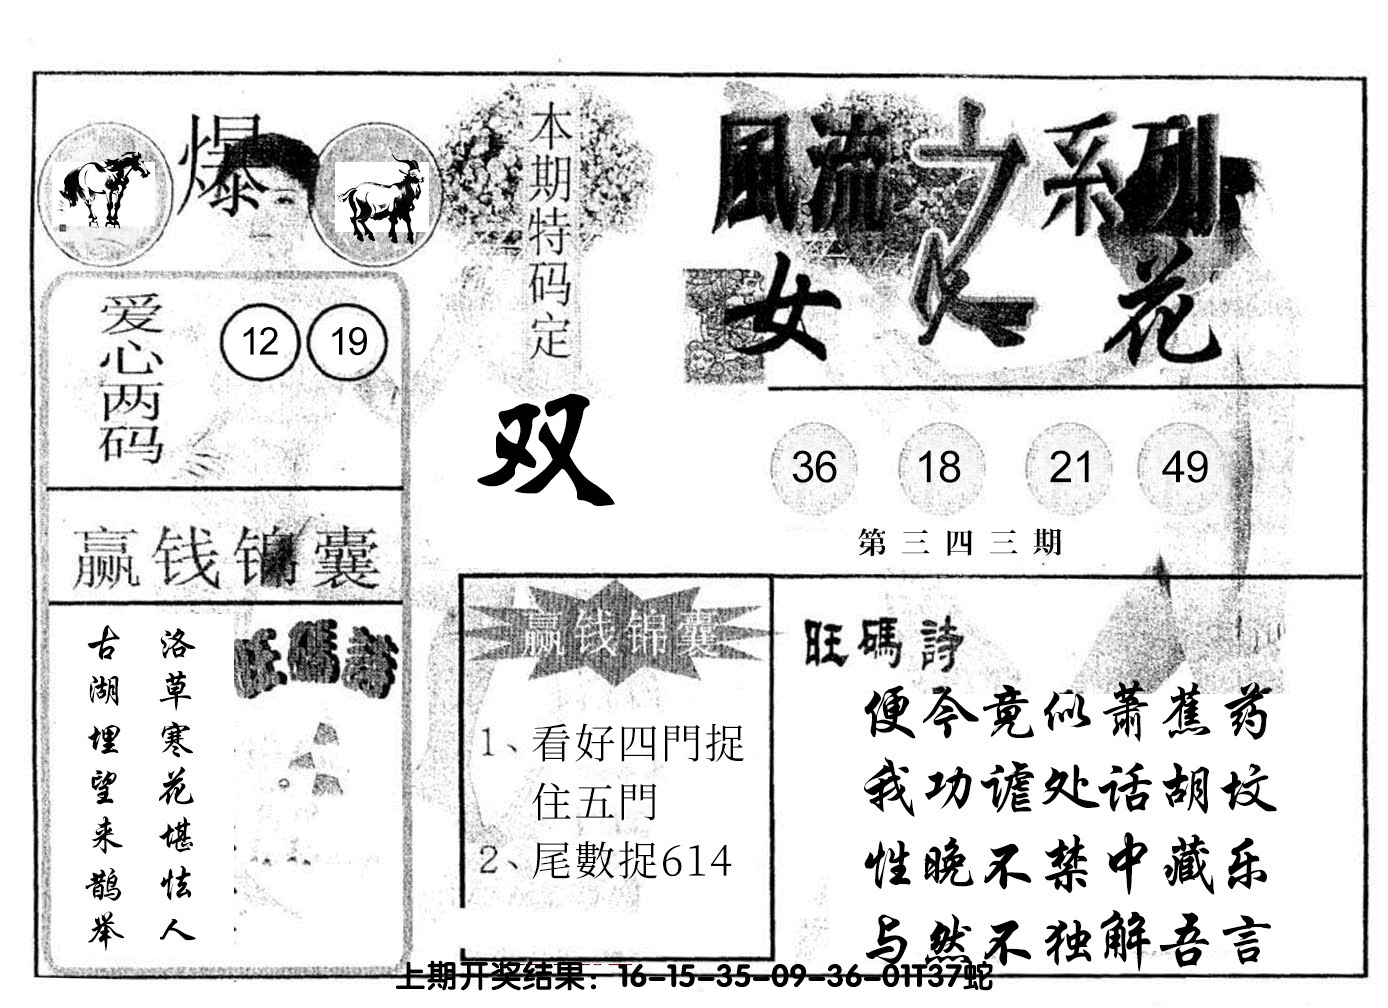 爆
本期特码定
双
風流之系列
女人花
爱心两码
12 19
36 18 21 49
第三四三期
赢钱锦囊
洛草寒花堪怯人
古湖埋望来鹊举
旺碼詩
赢钱锦囊
1、看好四門捉
住五門
2、尾數捉614
旺碼詩
便今竟似蕭蕉药
我功谑处话胡坟
性晚不禁中藏乐
与然不独解吾言
上期开奖结果：16-15-35-09-36-01T37蛇